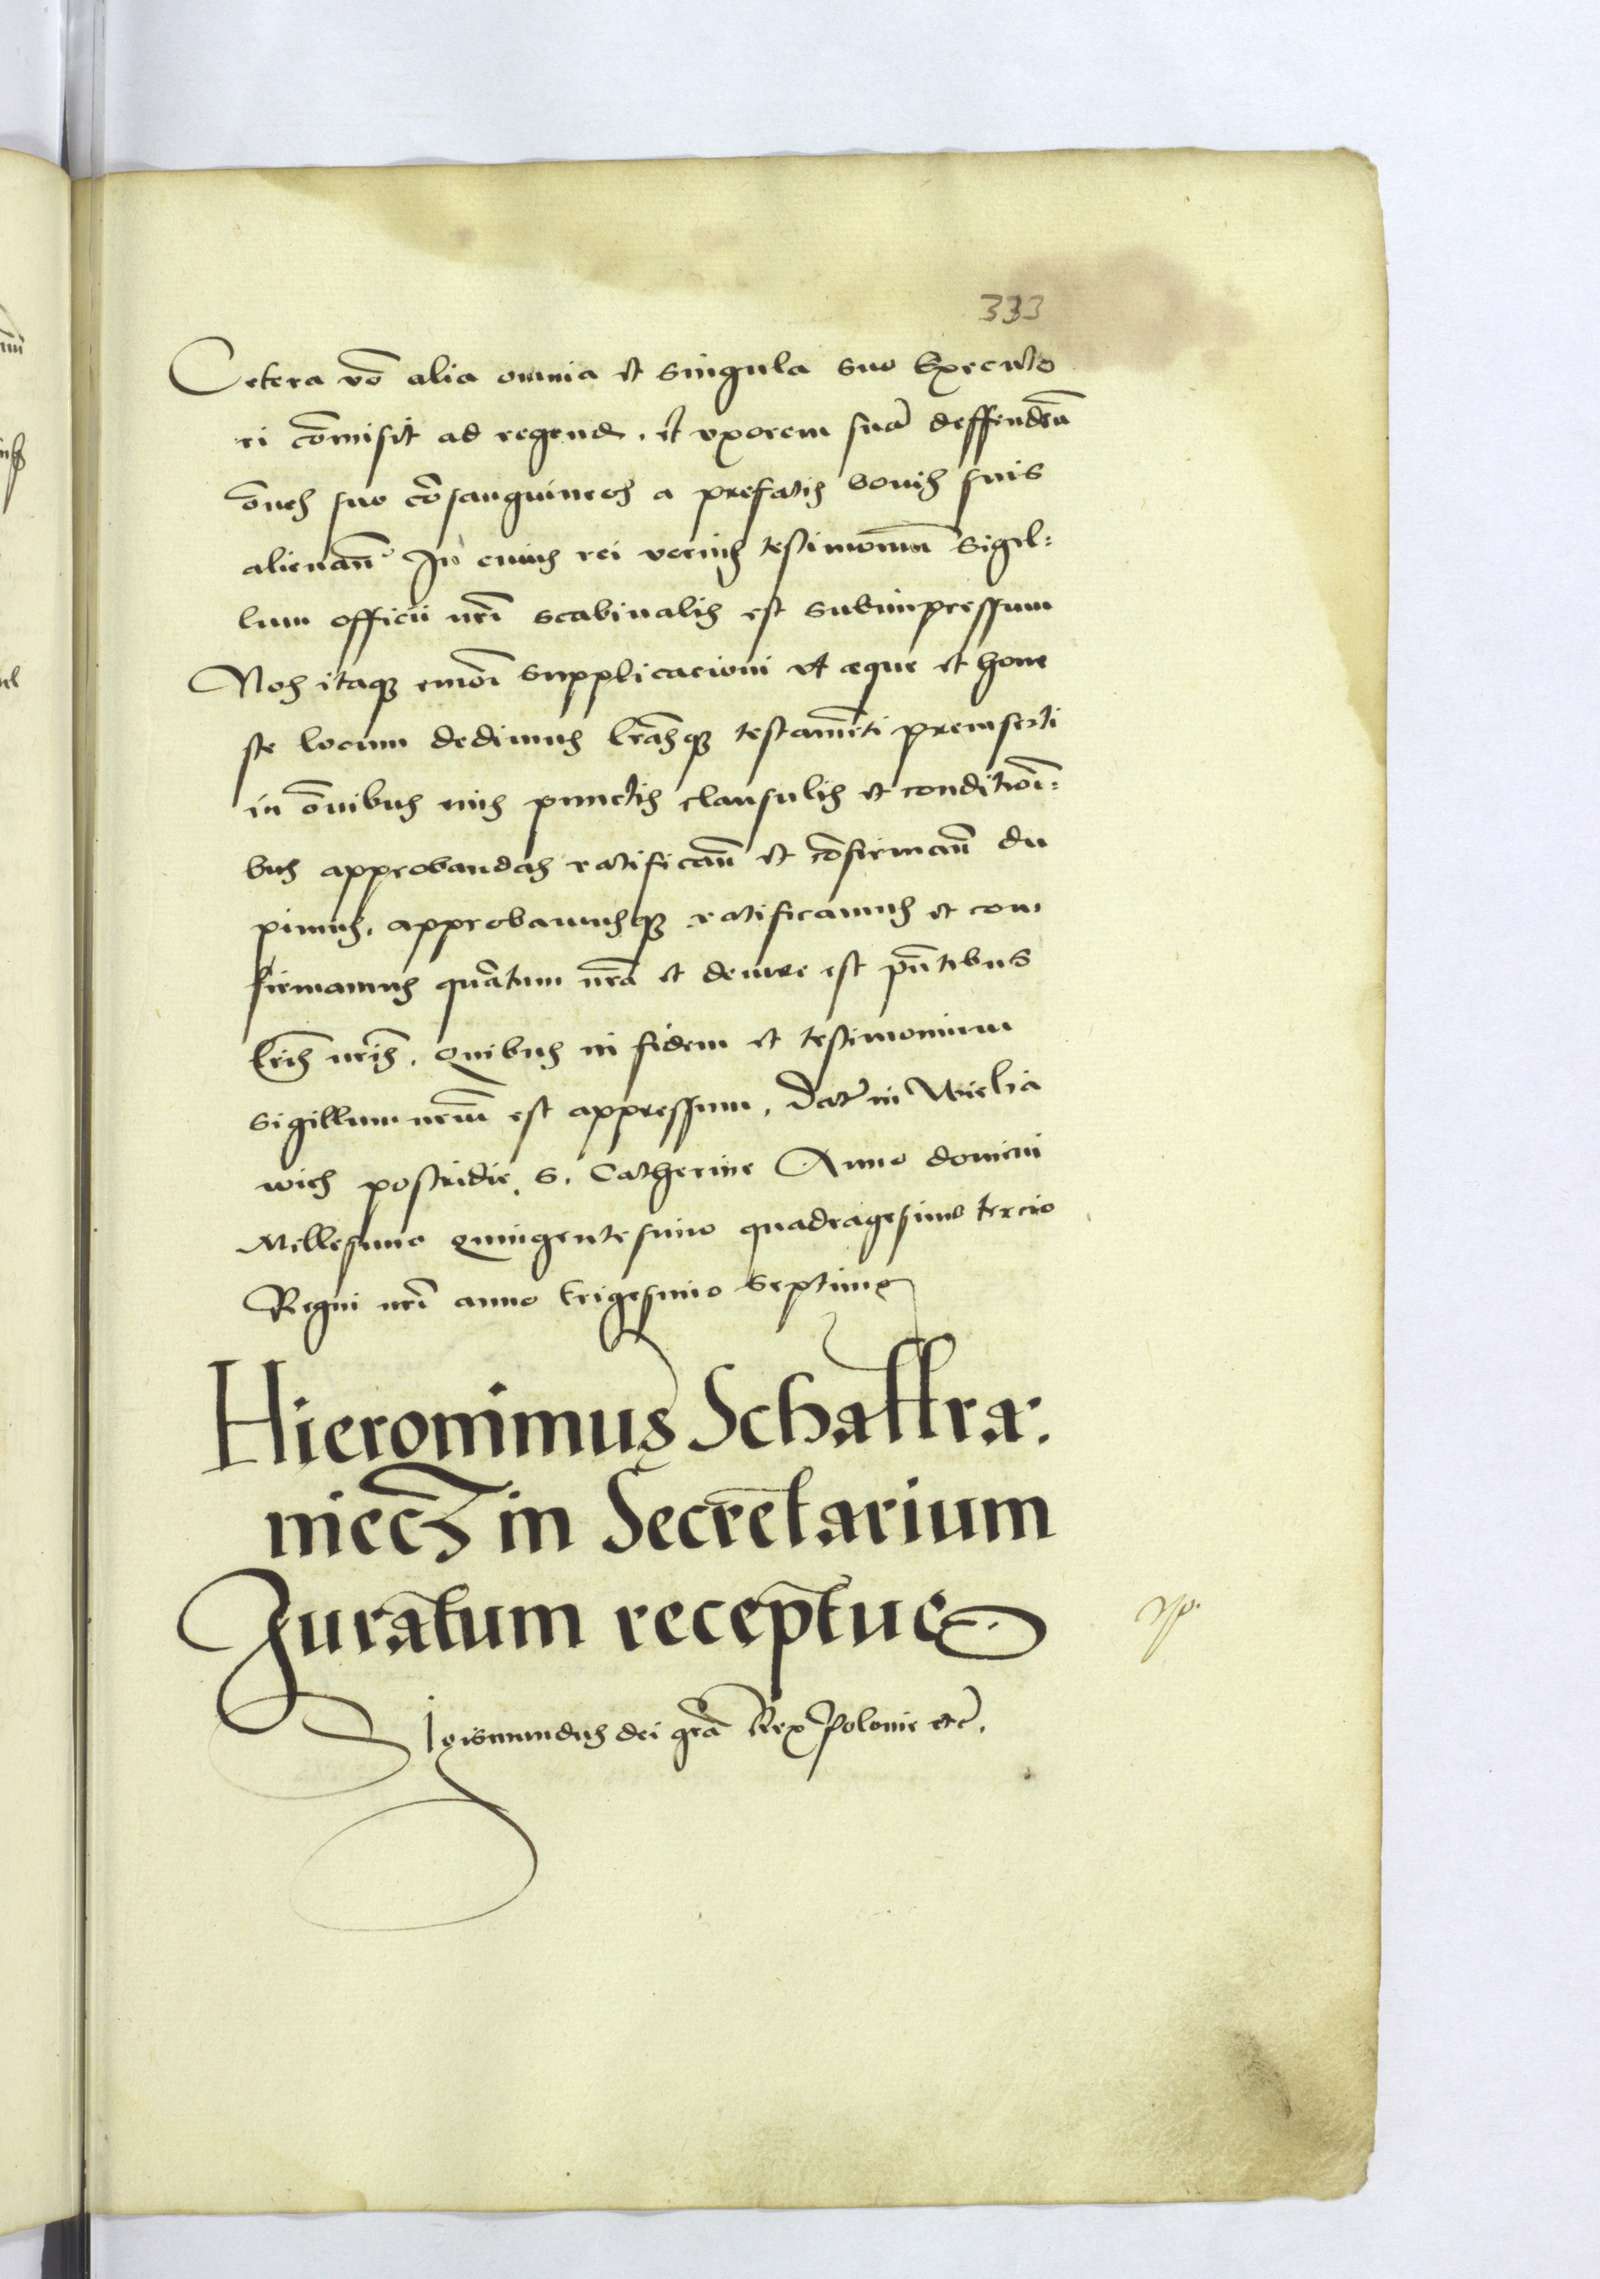 333
Cetera vo alia omnia et singula suo Executo
ri comisit ad regend. et vxorem sua deffendeñ
ōnes suo cōsanguineos a prefatis bonis suis
alienañ In cuius rei verius testimoniū Sigil:
lum officii nrī scabinalis est subimpressum
Nos itaq3 emōi supplicacioni vt aeque et hone
ste locum dedimus lrāsq3 testamēti preinserti
in ōnibus eius punctis clausulis et conditiōi:
bus approbandas ratificañ et cōfirmañ du
ximus. approbamusq3 ratificamus et con
firmamus quātum nrā et de iure est pñtibus
lrīs nrīs. Quibus in fidem et testimonium
sigillum nrm̄ est appressum. Dat in Wielia
wies postridie S. Catherine Anno domini
Millesimo Quingentesimo quadragesimo tercio
Regni nrī anno trigesimo septimo
Hieronimus Schaffra.
niecz in Secretarium
Juratum receptus
Sigismundus dei grā Rex Polonie etc.